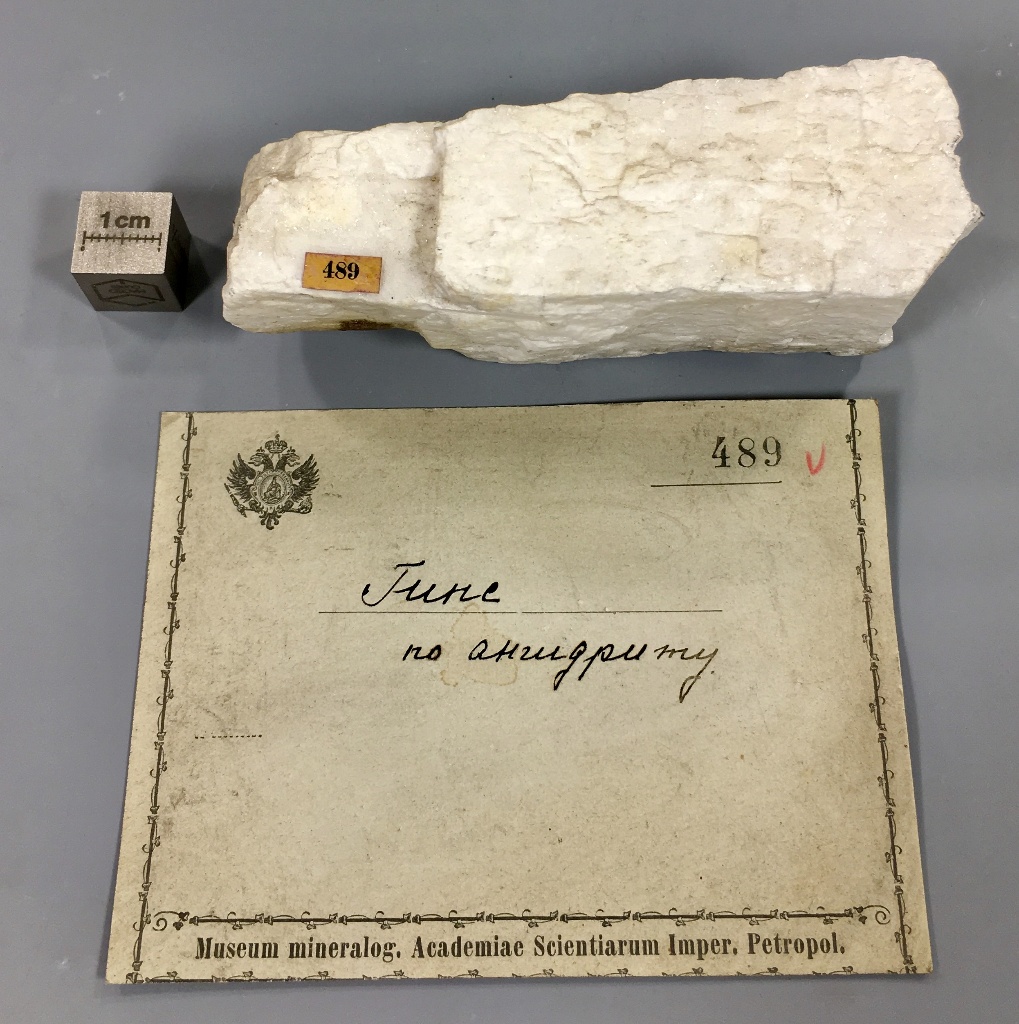 1cm
489
489
Гипс
по ангидриту
Museum mineralog. Academiae Scientiarum Imper. Petropol.